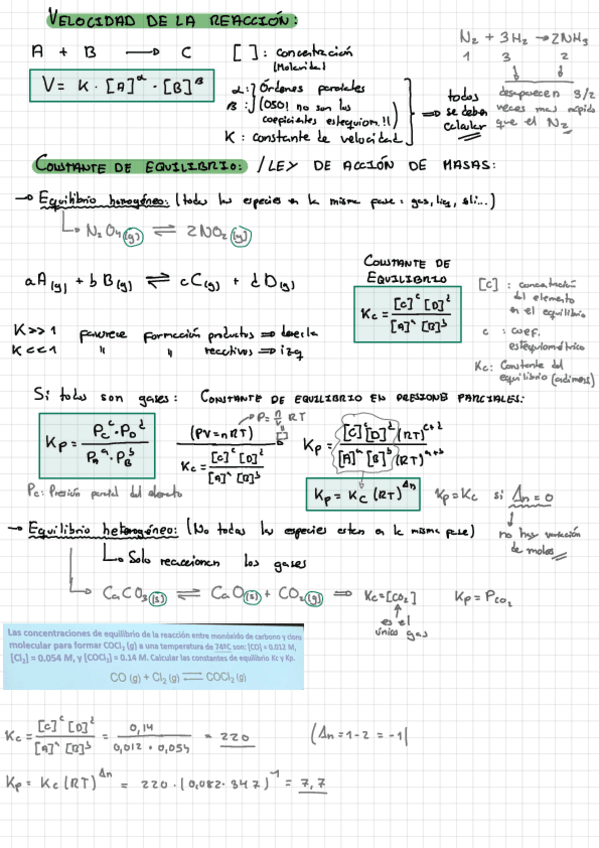 VELOCIDAD DE LA REACCIÓN:
A + B → C
[ ] : concentración (Molaridad)
N₂ + 3H₂ → 2NH₃
1 3 2
desaparecen 3/2 veces mas rápido que el N₂
V = K · [A]^α · [B]^β
α: } Órdenes parciales
β: } (OJO! no son los coeficientes estequiom.!!)
K : constante de velocidad
⇒ todos se deben calcular
CONSTANTE DE EQUILIBRIO: / LEY DE ACCIÓN DE MASAS:
→ Equilibrio homogéneo: (todas las especies en la misma fase: gas, liq, sli...)
↳ N₂O₄(g) ⇌ 2NO₂(g)
aA(g) + bB(g) ⇌ cC(g) + dD(g)
CONSTANTE DE EQUILIBRIO
Kc = [C]^c [D]^d / [A]^a [B]^b
[C] : concentración del elemento en el equilibrio
c : coef. estequiométrico
Kc: Constante del equilibrio (adimens)
K >> 1 favorece formación productos ⇒ derecha
K << 1 " " reactivos ⇒ izq
Si todos son gases: CONSTANTE DE EQUILIBRIO EN PRESIONES PARCIALES:
Kp = Pc^c · PD^d / PA^a · PB^b
(PV = nRT) → P = n/V RT
Kc = [C]^c [D]^d / [A]^a [B]^b
Kp = [C]^c [D]^d (RT)^c+d / [A]^a [B]^b (RT)^a+b
Pc: Presión parcial del elemento
Kp = Kc (RT)^Δn
Kp = Kc si Δn = 0
↓ no hay variación de moles
→ Equilibrio heterogéneo: (No todas las especies esten en la misma fase)
↳ Solo reaccionen los gases
↳ CaCO₃(s) ⇌ CaO(s) + CO₂(g) ⇒ Kc = [CO₂] Kp = P CO₂
↑ es el único gas
Las concentraciones de equilibrio de la reacción entre monóxido de carbono y cloro
molecular para formar COCl₂ (g) a una temperatura de 74ºC son: [CO] = 0.012 M,
[Cl₂] = 0.054 M, y [COCl₂] = 0.14 M. Calcular las constantes de equilibrio Kc y Kp.
CO (g) + Cl₂ (g) ⇌ COCl₂ (g)
Kc = [C]^c [D]^d / [A]^a [B]^b = 0,14 / 0,012 · 0,054 = 220 (Δn = 1-2 = -1)
Kp = Kc (RT)^Δn = 220 · (0,082 · 347)^-1 = 7,7